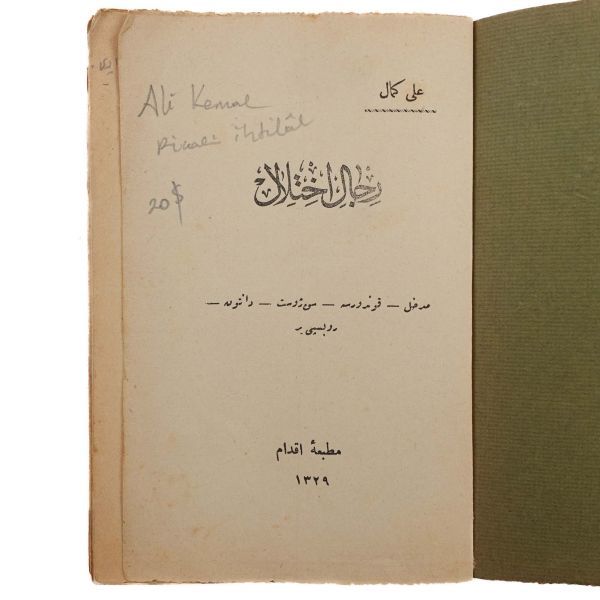 علی کمال
Ali Kemal
Ricali ihtilâl
رجال اختلال
20$
مدخل — قوندورسه — سن ژوست — دانتون —
روبسپیر
مطبعۀ اقدام
١٣٢٩